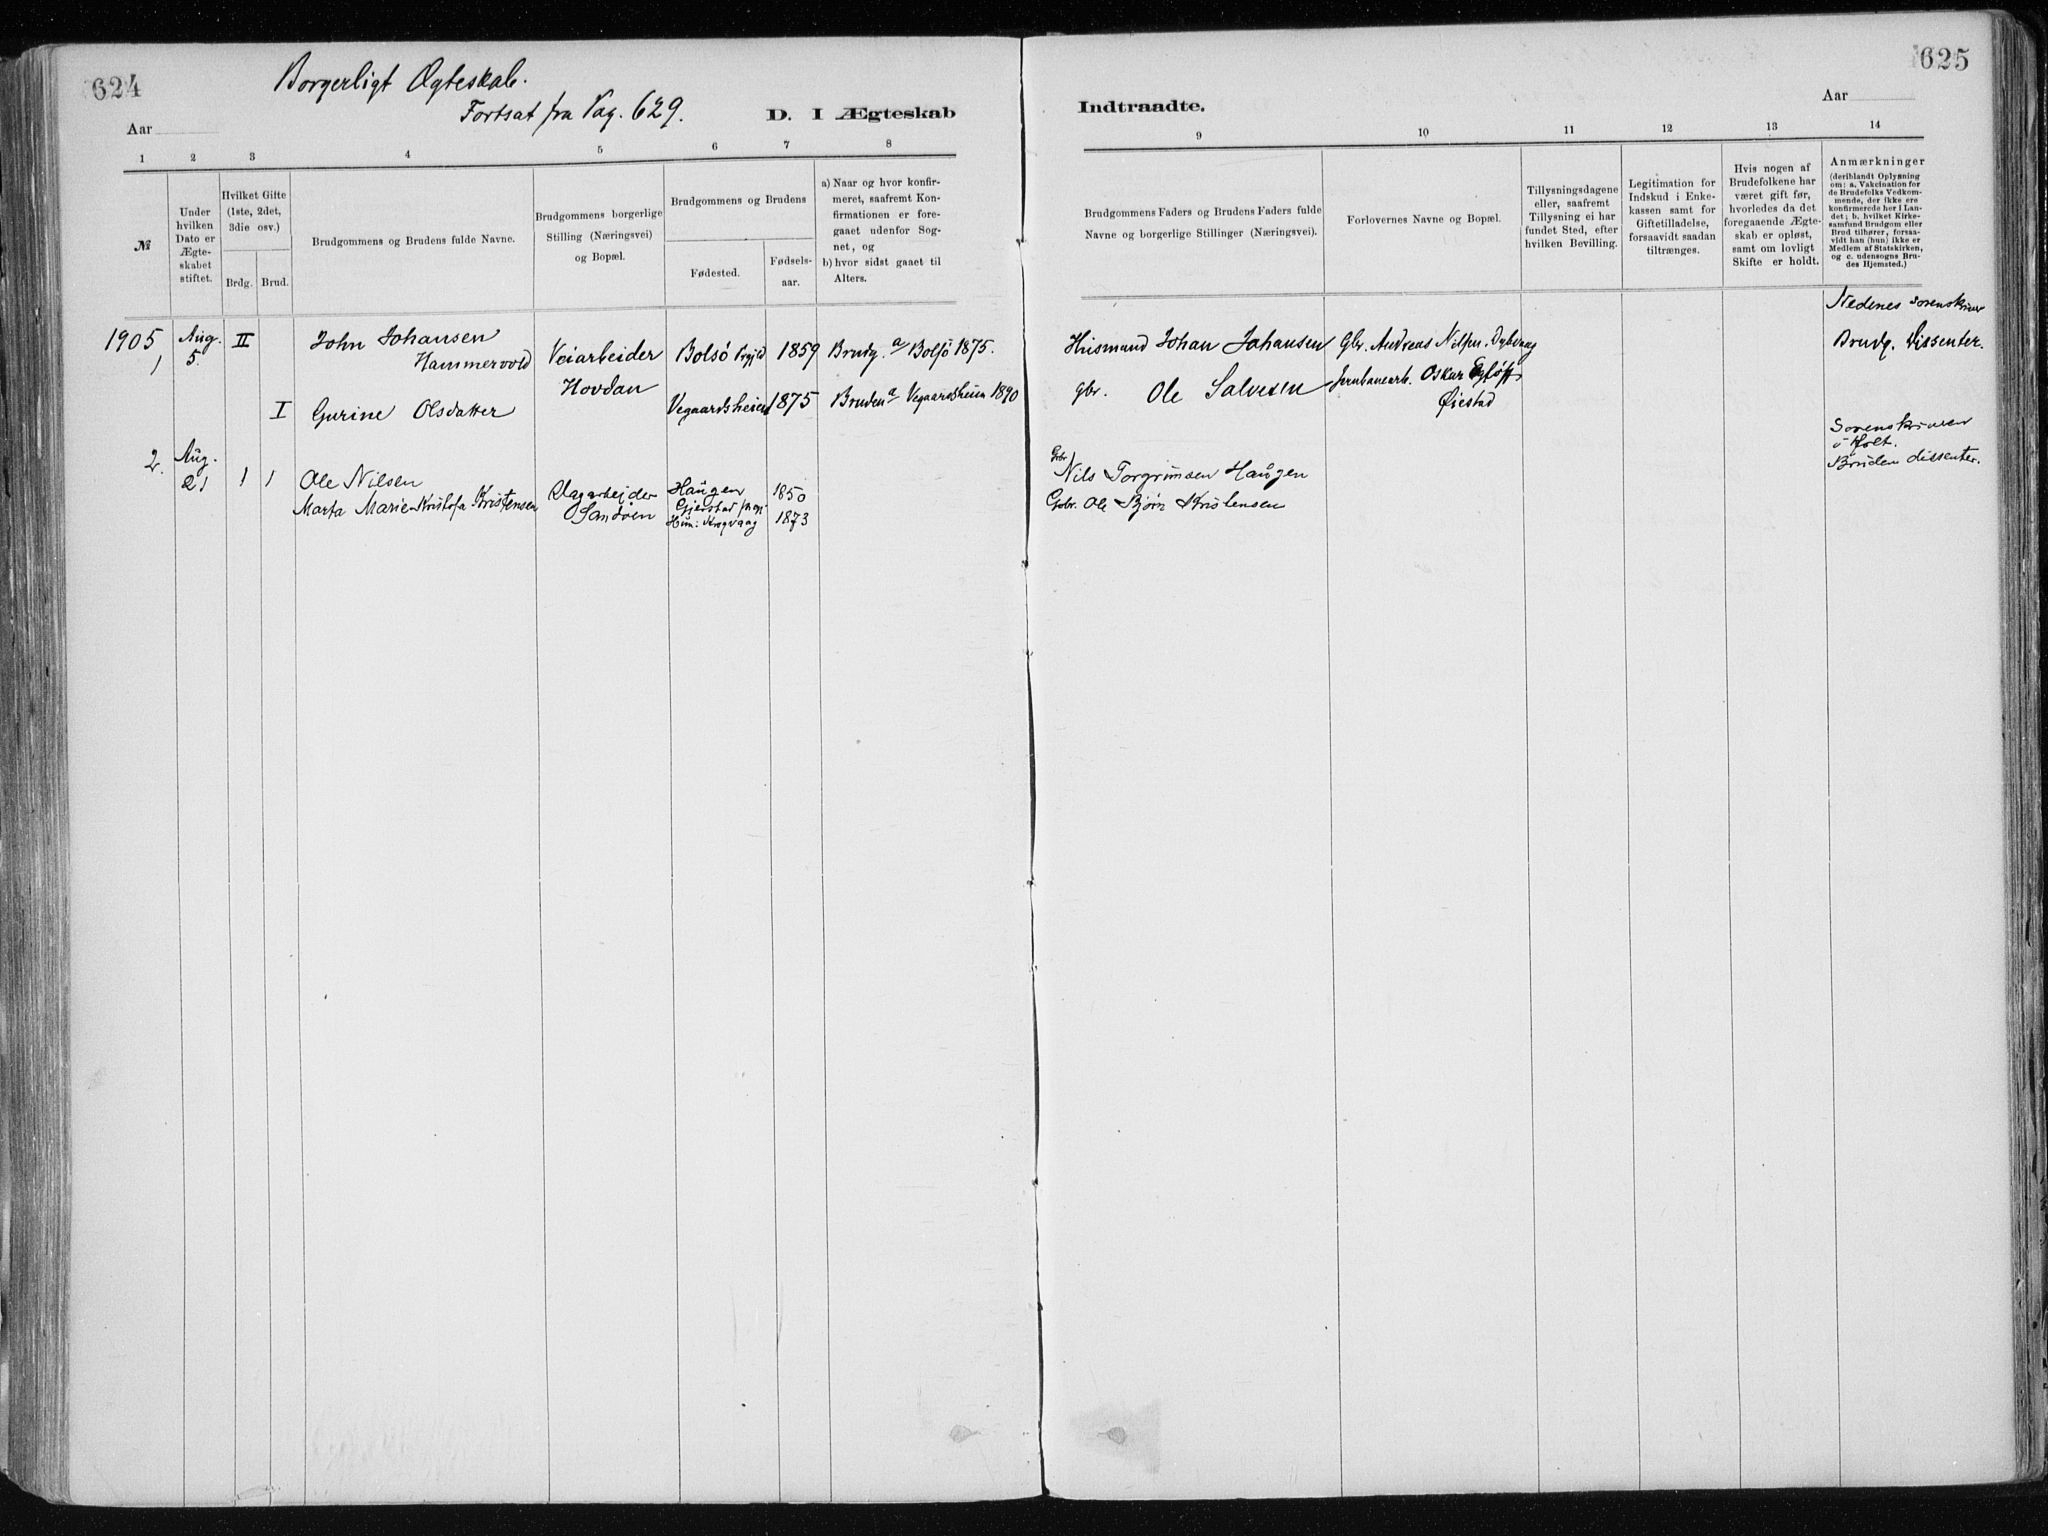 624
Borgerligt Ægteskab.
Fortsat fra Pag. 629.
Aar
D. I Ægteskab
1 2 3 4 5 6 7 8
№
Under hvilken Dato er Ægteskabet stiftet.
Hvilket Gifte (1ste, 2det, 3die osv.)
Brdg. Brud.
Brudgommens og Brudens fulde Navne.
Brudgommens borgerlige Stilling (Næringsvei) og Bopæl.
Brudgommens og Brudens
Fødested.
Fødselsaar.
a) Naar og hvor konfirmeret, saafremt Konfirmationen er foregaaet udenfor Sognet, og
b) hvor sidst gaaet til Alters.
1905 Aug. II John Johansen
1 5. Hammervold Veiarbeider Bolsö Prgjd 1859 Brudg. a/ Bolsö 1875.
Hovdan
I Gurine Olsdatter Vegaardsheien 1875 Bruden a/ Vegaardsheien 1890
2. Aug.
21 1 1 Ole Nilsen Dagarbejder Haugen 1850
Marta Marie Kristofa Kristensen Sandöen Gjerstad
Krogvaag 1873
625
Aar
Indtraadte.
9 10 11 12 13 14
Brudgommens Faders og Brudens Faders fulde Navne og borgerlige Stillinger (Næringsvei).
Forlovernes Navne og Bopæl.
Tillysningsdagene eller, saafremt Tillysning ei har fundet Sted, efter hvilken Bevilling.
Legitimation for Indskud i Enkekassen samt for Giftetilladelse, forsaavidt saadan tiltrænges.
Hvis nogen af Brudefolkene har været gift før, hvorledes da det foregaaende Ægteskab er opløst, samt om lovligt Skifte er holdt.
Anmærkninger (deriblandt Oplysning om: a. Vakcination for de Brudefolks Vedkommende, der ikke ere konfirmerede her i Landet; b. hvilket Kirkesamfund Brudgom eller Brud tilhører, forsaavidt han (hun) ikke er Medlem af Statskirken, og c. udensogns Brudes Hjemsted.)
Nedenes sorenskriver
Husmand Johan Johansen Gbr. Andreas Nilsen. Dybvaag Brudg. Dissenter.
Gbr. Ole Salvesen Jernbanearb. Oskar
Øiestad
Sorenskriveren
i Holt.
Gbr. Nils Torgrimsen Haugen Bruden dissenter.
Gbr. Ole Bjørn Kristensen